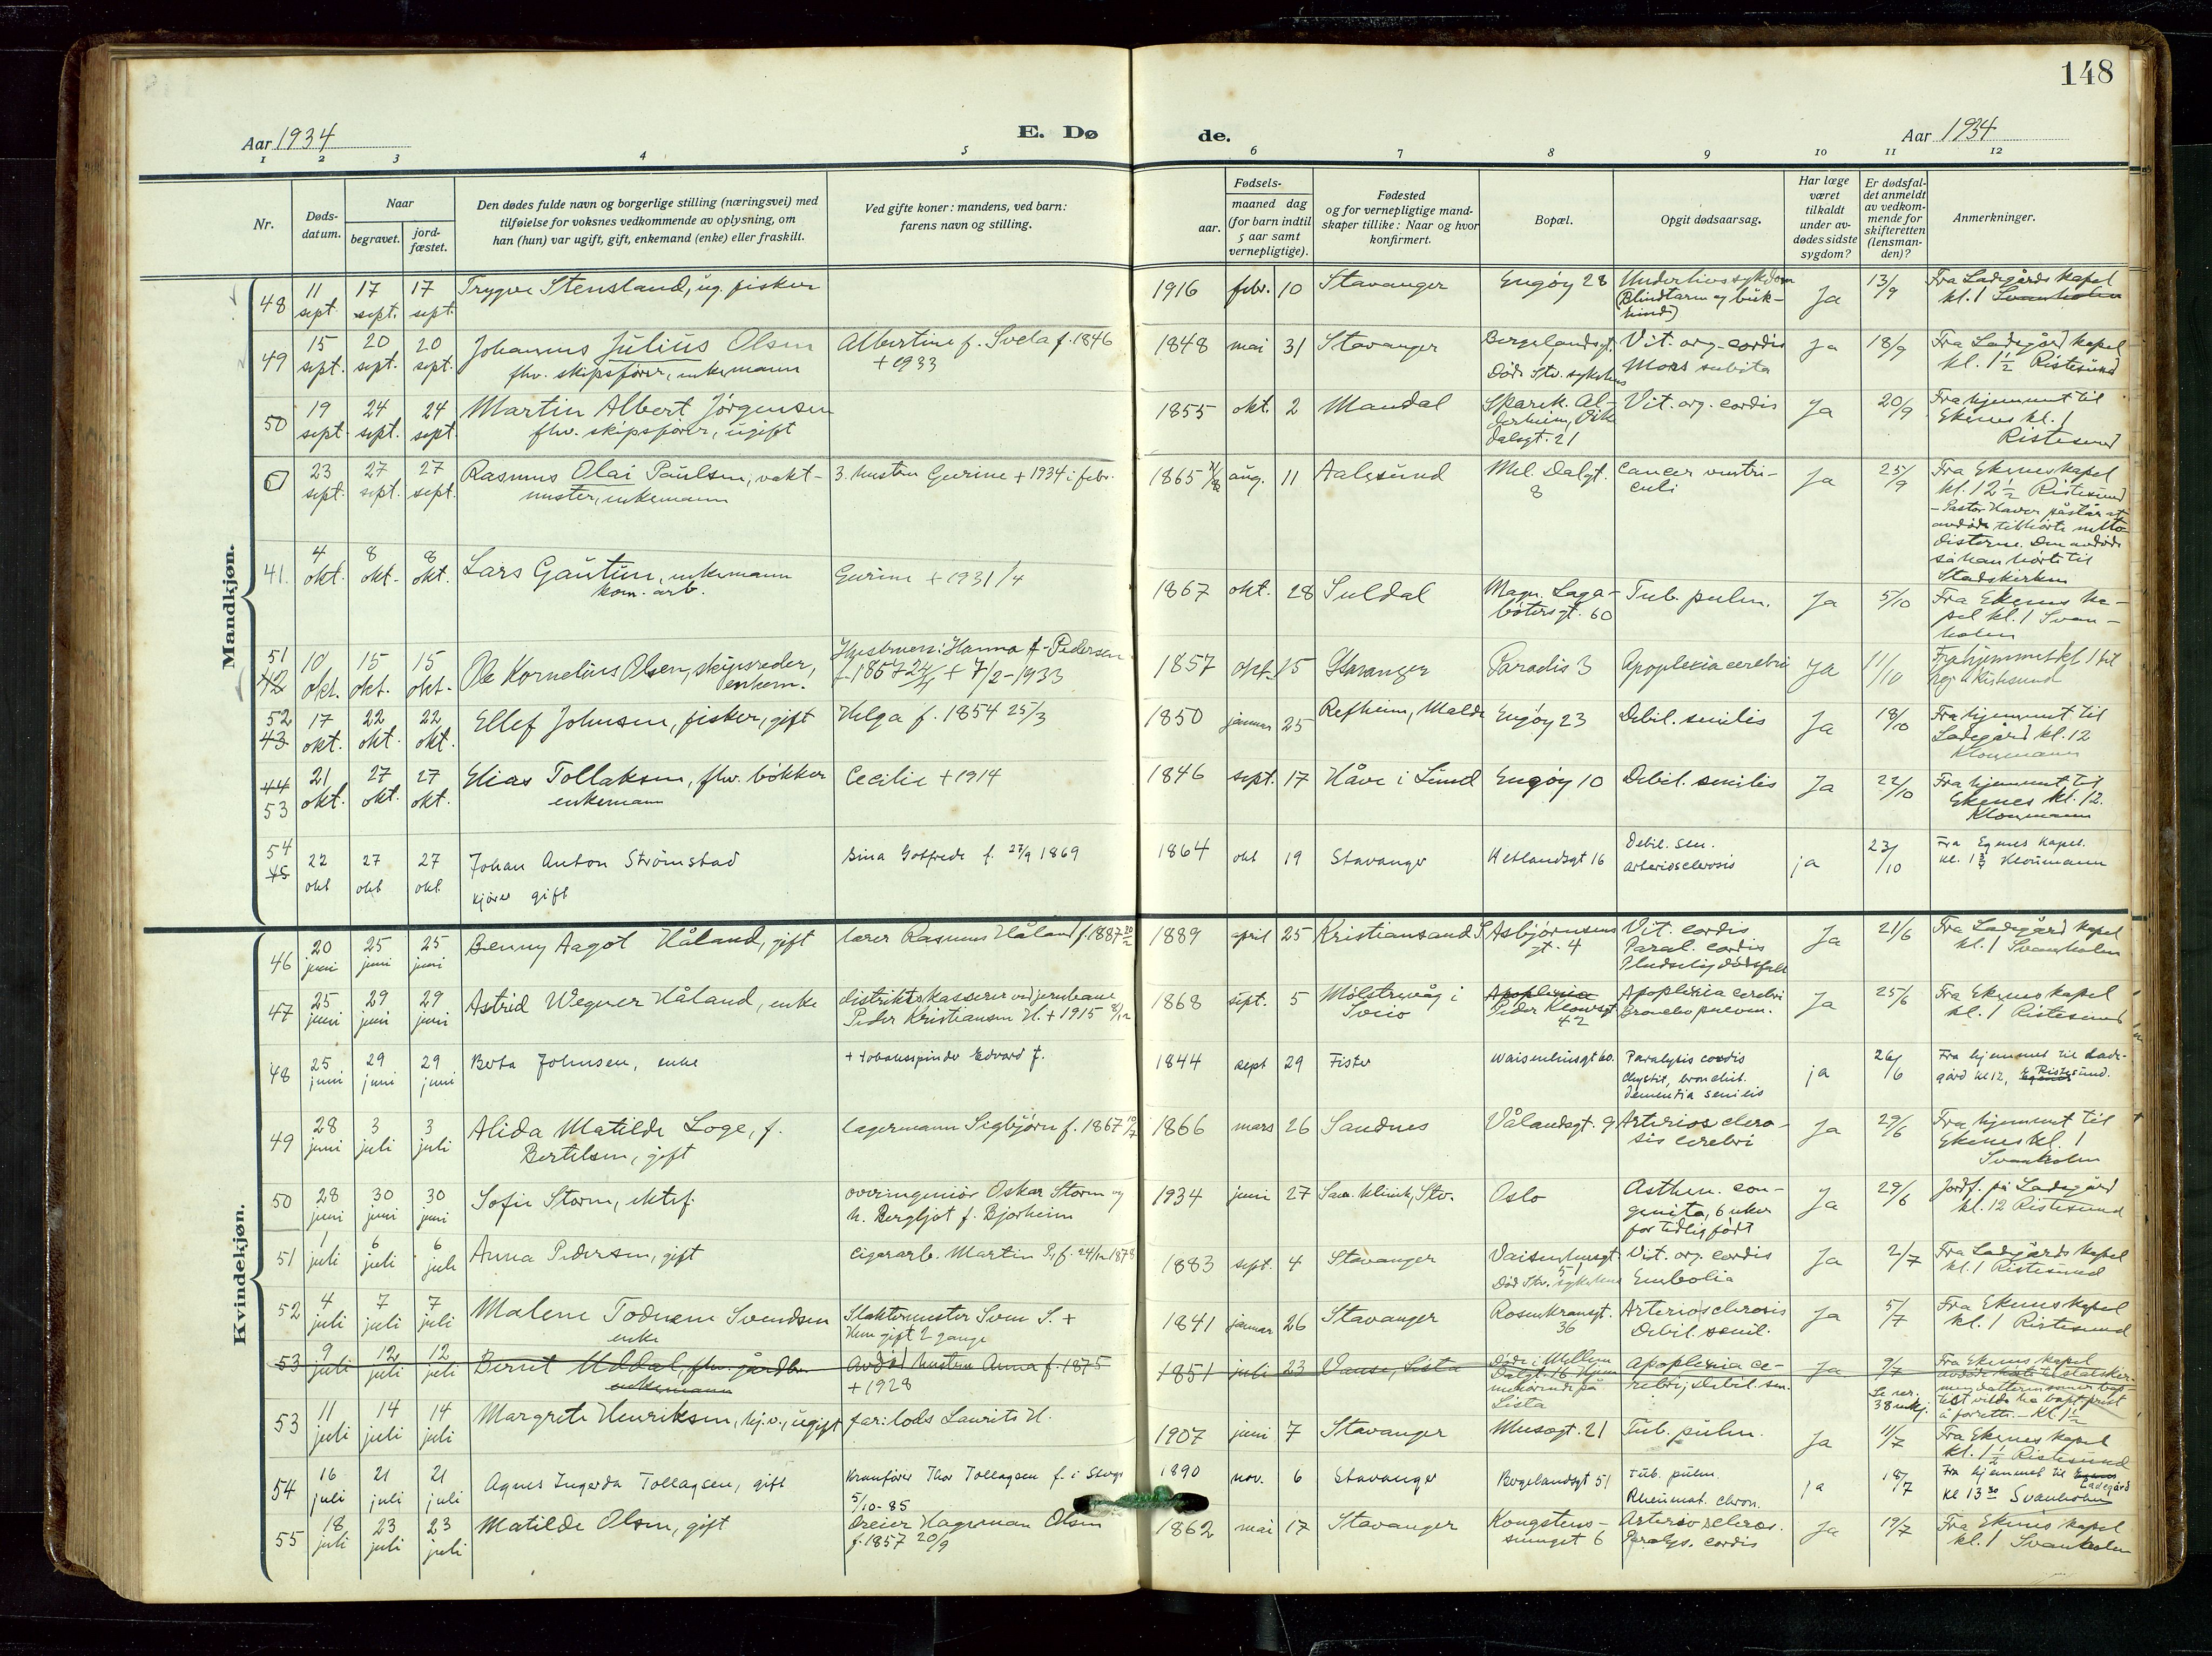 148
Aar 1934
E. Dø
de.
Aar 1934
1 2 3 4 5 6 7 8 9 10 11 12
Nr.
Døds-
datum.
Naar
begravet.
jord-
fæstet.
Den dødes fulde navn og borgerlige stilling (næringsvei) med
tilføielse for voksnes vedkommende av oplysning, om
han (hun) var ugift, gift, enkemand (enke) eller fraskilt.
Ved gifte koner: mandens, ved barn:
farens navn og stilling.
Fødsels-
aar.
maaned dag
(for barn indtil
5 aar samt
vernepligtige).
Fødested
og for vernepligtige mand-
skaper tillike: Naar og hvor
konfirmert.
Bopæl.
Opgit dødsaarsag.
Har læge
været
tilkaldt
under av-
dødes sidste
sygdom?
Er dødsfal-
det anmeldt
av vedkom-
mende for
skifteretten
(lensman-
den)?
Anmerkninger.
Mandkjøn.
48 11 sept. 17 sept. 17 sept. Trygve Stensland, ug. fisker
1916 febr. 10 Stavanger Engøy 28 Underlivssykdom
(Blindtarm og buk-
hinde) Ja 13/9 Fra Ladegårds kapel
kl. 1 Svanholm
49 15 sept. 20 sept. 20 sept. Johannes Julius Olsen
fhv. skipsfører, enkemann
Albertine f. Svela f. 1846
+ 1933
1848 mai 31 Stavanger Bergelandsgt.
Død i Stv. sykehus
Vit. org. cordis
Mors subita Ja 18/9 Fra Ladegård kapel
kl. 1 1/2 Ristesund
50 19 sept. 24 sept. 24 sept. Martin Albert Jörgensen
fhv. skipsfører, ugift
1855 okt. 2 Mandal Sparek. Al-
derheim,
dalsgt. 21
Vit. org. cordis Ja 20/9 Fra hjemmet til
Ekenes kl. 1
Ristesund
0 23 sept. 27 sept. 27 sept. Rasmus Olai Paulsen, vakt-
mester, enkemann
3. hustru Gurine + 1934 i febr.
1865 aug. 11 Aalesund Mel. Dalgt.
8
Cancer ventri-
culi Ja 25/9 Fra Ekenes kapel
kl. 12 1/2 Ristesund
- Pastor Haver påstår at
avdøde tilhørte meto-
disterne. Den avdøde
sa han hørte til
Statskirken
41. 4 okt. 8 okt. 8 okt. Lars Gautun, enkemann
kom. arb.
Gurine + 1931/4
1867 okt. 28 Suldal Magn. Laga-
bötersgt. 60
Tub. pulm. Ja 5/10 Fra Ekenes ka-
pel kl. 1 Svan-
holm
51 42 10 okt. 15 okt. 15 okt. Ole Kornelius Olsen, skipsreder,
enkem.
Hustruen: Hanna f. Pedersen
f. 1857 24/4 + 7/2-1933
1857 okt. 15 Stavanger Paradis 3 Apoplexia cerebri Ja 11/10 Fra hjemmet kl 1 til
Ristesund
52 43 17 okt. 22 okt. 22 okt. Ellef Johnsen, fisker, gift
Helga f. 1854 25/3
1850 januar 25 Refheim, Molde Engøy 23 Debil. senilis Ja 18/10 Fra hjemmet til
Ladegård kl. 12
Kloumann
44 53 21 okt. 27 okt. 27 okt. Elias Tollaksen, fhv. bökker
enkemann
Cecilie + 1914
1846 sept. 17 Håve i Lund Engøy 10 Debil. senilis Ja 22/10 Fra hjemmet til
Ekenes kl. 12.
Kloumann
54 45 22 okt 27 okt 27 okt. Johan Anton Strömstad
kjörer gift
Sina Gotfrede f. 27/9 1869
1864 okt 19 Stavanger Hetlandsgt 16 Debil. sen.
arteriosclerosis ja 23/10 Fra Egenes Kapel.
kl. 1 Kloumann
Kvindekjøn.
46 20 juni 25 juni 25 juni Benny Aagot Håland, gift
lærer Rasmus Håland f. 1887
1889 april 25 Kristiansand S Asbjørnsens
gt. 4
Vit. cordis
Paral. cordis
Pludselig dødsfall Ja 21/6 Fra Ladegård kapel
kl. 1 Svanholm
47 25 juni 29 juni 29 juni Astrid Wegner Håland, enke
distriktskasserer ved jernbane
Peder Kristiansen H. + 1915
1868 sept. 5 Mölstrevåg i
Sveio
Apoplexia
Peder Klowsgt
42
Apoplexia cerebri
Bronchopneum. Ja 25/6 Fra Ekenes kapel
kl. 1 Ristesund
48 25 juni 29 juni 29 juni Berta Johnsen, enke
+ tobaksspinder Edvard J.
1844 sept 29 Fister Waisenhusgt 60. Paralysis cordis
Chystit, bronchit.
dementia senilis ja 26/6 Fra hjemmet til Lade-
gård kl 12, Egenes Ristesund.
49 28 juni 3 juli 3 juli Alida Matilde Loge, f.
Bertelsen, gift
lagermann Sigbjørn f. 1867
1866 mars 26 Sandnes Vålandsgt. 9 Arterioscлero-
sis cerebri Ja 29/6 Fra hjemmet til
Ekenes kl. 1
Svanholm
50 28 juni 30 juni 30 juni Sofie Storm, ektef.
overingeniör Oskar Storm og
h. Bergljot f. Bjorheim
1934 juni 27 San. klinik, Stv. Oslo Asthen. con-
genita, 6 uker
for tidlig født Ja 29/6 Jordf. på Ladegård
kl. 12 Ristesund
51 1 juli 6 juli 6 juli Anna Pedersen, gift
cigararb. Martin P., f. 24/12 1878
1883 sept. 4 Stavanger Vaisenhusgt.
51
Död Stv. sykehus
Vit. org. cordis
Embolia Ja 2/7 Fra Ladegårds kapel
kl. 1 Ristesund
52 4 juli 7 juli 7 juli Malene Todnem Svendsen
enke
Slaktermester Sven S. +
Hun gift 2 gange
1841 januar 26 Stavanger Rosenkransgt.
36
Arteriosclerosis
Debil. senil. Ja 5/7 Fra Ekenes kapel
kl. 1 Ristesund
53 9 juli 12 juli 12 juli Bernt Uddal, fhv. gårdbr.
enkemann
Avdød hustru Anna f. 1875
+ 1928
1851 juli 23 Vanse, Lista Døde i Mellem
Dalgt. 16 Hjem-
mehörende på
Lista
Apoplexia ce-
rebri, Debil. sen. Ja 9/7
Se ner.
38 mkj.
Fra Ekenes kapel
avdøde hörte til statskir-
men datteren som er bap-
tist vilde ha bapt. prest
å forrette. - Kl. 1 1/2
53 11 juli 14 juli 14 juli Margrete Henriksen, hj.v., ugift
far: lods Laurits H.
1907 juni 7 Stavanger Musegt. 21 Tub. pulm. Ja 11/7 Fra Ekenes kapel
kl. 1 1/2 Ristesund
54 16 juli 21 juli 21 juli Agnes Ingerda Tollagsen, gift
Kranfører Thor Tollagsen f. i Stvgr
5/10-85
1890 nov. 6 Stavanger Bergelandsgt 51 Tub. pulm.
Rheumat. chron. ja 18/7 Fra hjemmet til Egenes
Ladegård
kl 13 30 Svanholm
55 18 juli 23 juli 23 juli Matilde Olsen, gift
Dreier Hagerman Olsen
f. 1857 20/9
1862 mai 17 Stavanger Kongstens-
smuget 6
Arterioscleros.
Paralys. cordis Ja 19/7 Fra Ekenes kapel
kl. 1 Svanholm